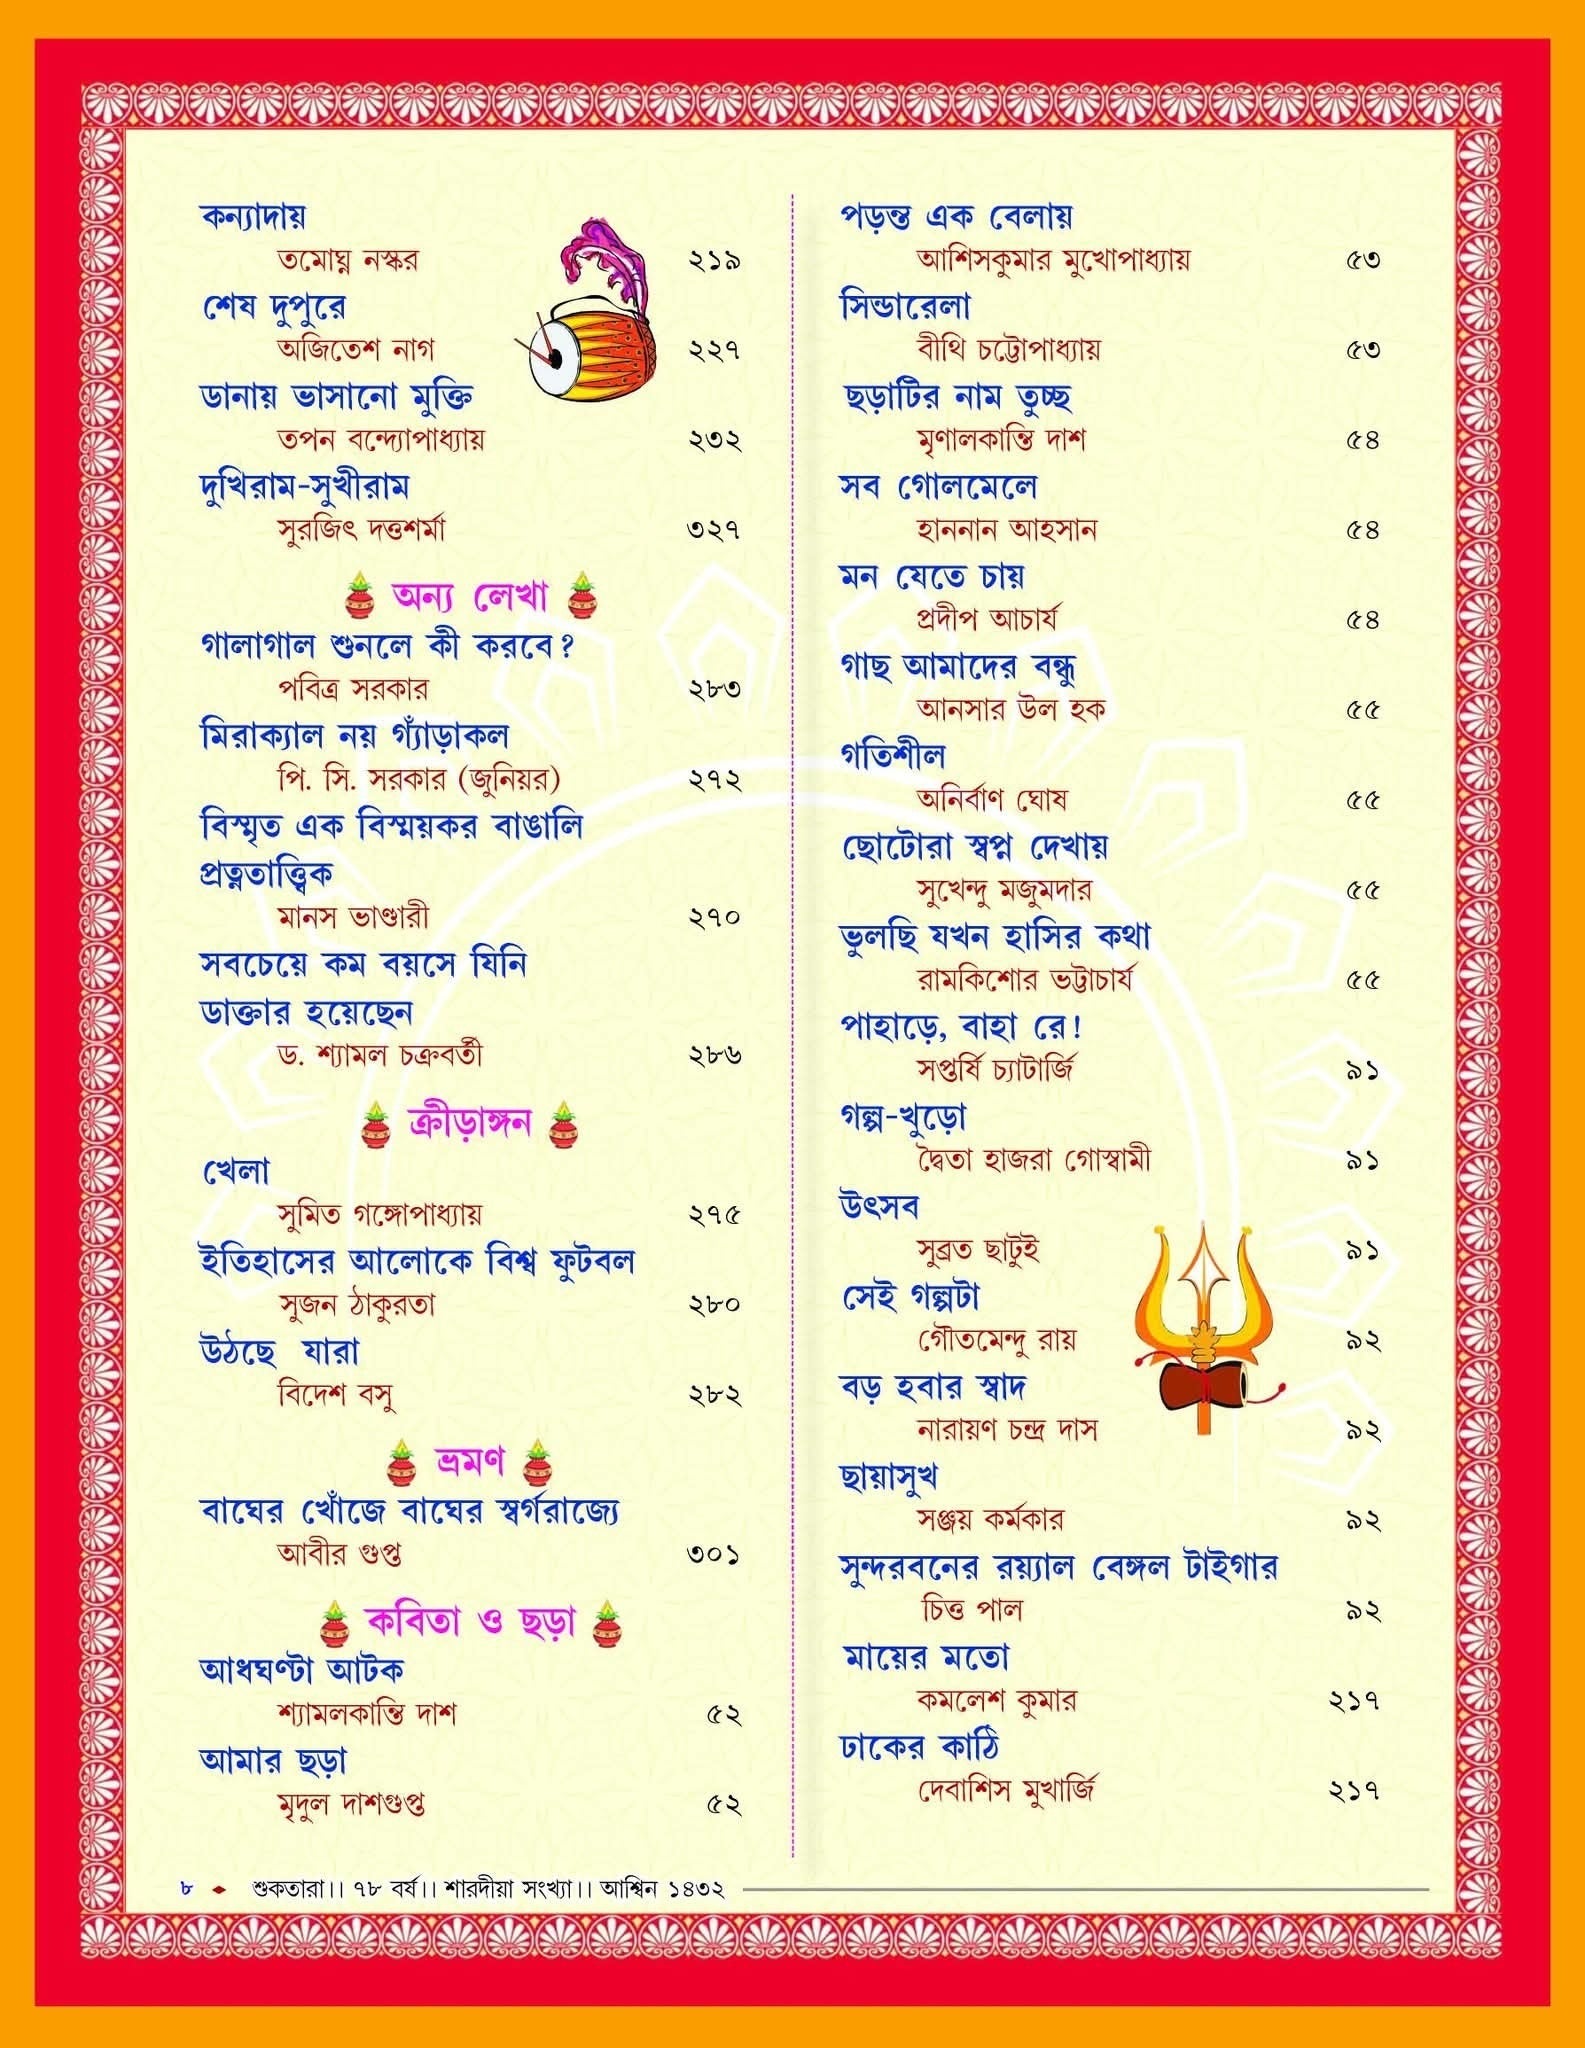 কন্যাদায়
তমোঘ্ন নস্কর ২১৯
শেষ দুপুরে
অজিতেশ নাগ ২২৭
ডানায় ভাসানো মুক্তি
তপন বন্দ্যোপাধ্যায় ২৩২
দুখিরাম-সুখীরাম
সুরজিৎ দত্তশর্মা ৩২৭
অন্য লেখা
গালাগাল শুনলে কী করবে?
পবিত্র সরকার ২৮৩
মিরাক্যাল নয় গ্যাঁড়াকল
পি. সি. সরকার (জুনিয়র) ২৭২
বিস্মৃত এক বিস্ময়কর বাঙালি
প্রত্নতাত্ত্বিক
মানস ভাণ্ডারী ২৭০
সবচেয়ে কম বয়সে যিনি
ডাক্তার হয়েছেন
ড. শ্যামল চক্রবর্তী ২৮৬
ক্রীড়াঙ্গন
খেলা
সুমিত গঙ্গোপাধ্যায় ২৭৫
ইতিহাসের আলোকে বিশ্ব ফুটবল
সুজন ঠাকুরতা ২৮০
উঠছে যারা
বিদেশ বসু ২৮২
ভ্রমণ
বাঘের খোঁজে বাঘের স্বর্গরাজ্যে
আবীর গুপ্ত ৩০১
কবিতা ও ছড়া
আধঘণ্টা আটক
শ্যামলকান্তি দাশ ৫২
আমার ছড়া
মৃদুল দাশগুপ্ত ৫২
পড়ন্ত এক বেলায়
আশিসকুমার মুখোপাধ্যায় ৫৩
সিন্ডারেলা
বীথি চট্টোপাধ্যায় ৫৩
ছড়াটির নাম তুচ্ছ
মৃণালকান্তি দাশ ৫৪
সব গোলমেলে
হাননান আহসান ৫৪
মন যেতে চায়
প্রদীপ আচার্য ৫৪
গাছ আমাদের বন্ধু
আনসার উল হক ৫৫
গতিশীল
অনির্বাণ ঘোষ ৫৫
ছোটোরা স্বপ্ন দেখায়
সুখেন্দু মজুমদার ৫৫
ভুলছি যখন হাসির কথা
রামকিশোর ভট্টাচার্য ৫৫
পাহাড়ে, বাহা রে!
সপ্তর্ষি চ্যাটার্জি ৯১
গল্প-খুড়ো
দ্বৈতা হাজরা গোস্বামী ৯১
উৎসব
সুব্রত ছাটুই ৯১
সেই গল্পটা
গৌতমেন্দু রায় ৯২
বড় হবার স্বাদ
নারায়ণ চন্দ্র দাস ৯২
ছায়াসুখ
সঞ্জয় কর্মকার ৯২
সুন্দরবনের রয়্যাল বেঙ্গল টাইগার
চিত্ত পাল ৯২
মায়ের মতো
কমলেশ কুমার ২১৭
ঢাকের কাঠি
দেবাশিস মুখার্জি ২১৭
৮ ◆ শুকতারা।। ৭৮ বর্ষ।। শারদীয়া সংখ্যা।। আশ্বিন ১৪৩২